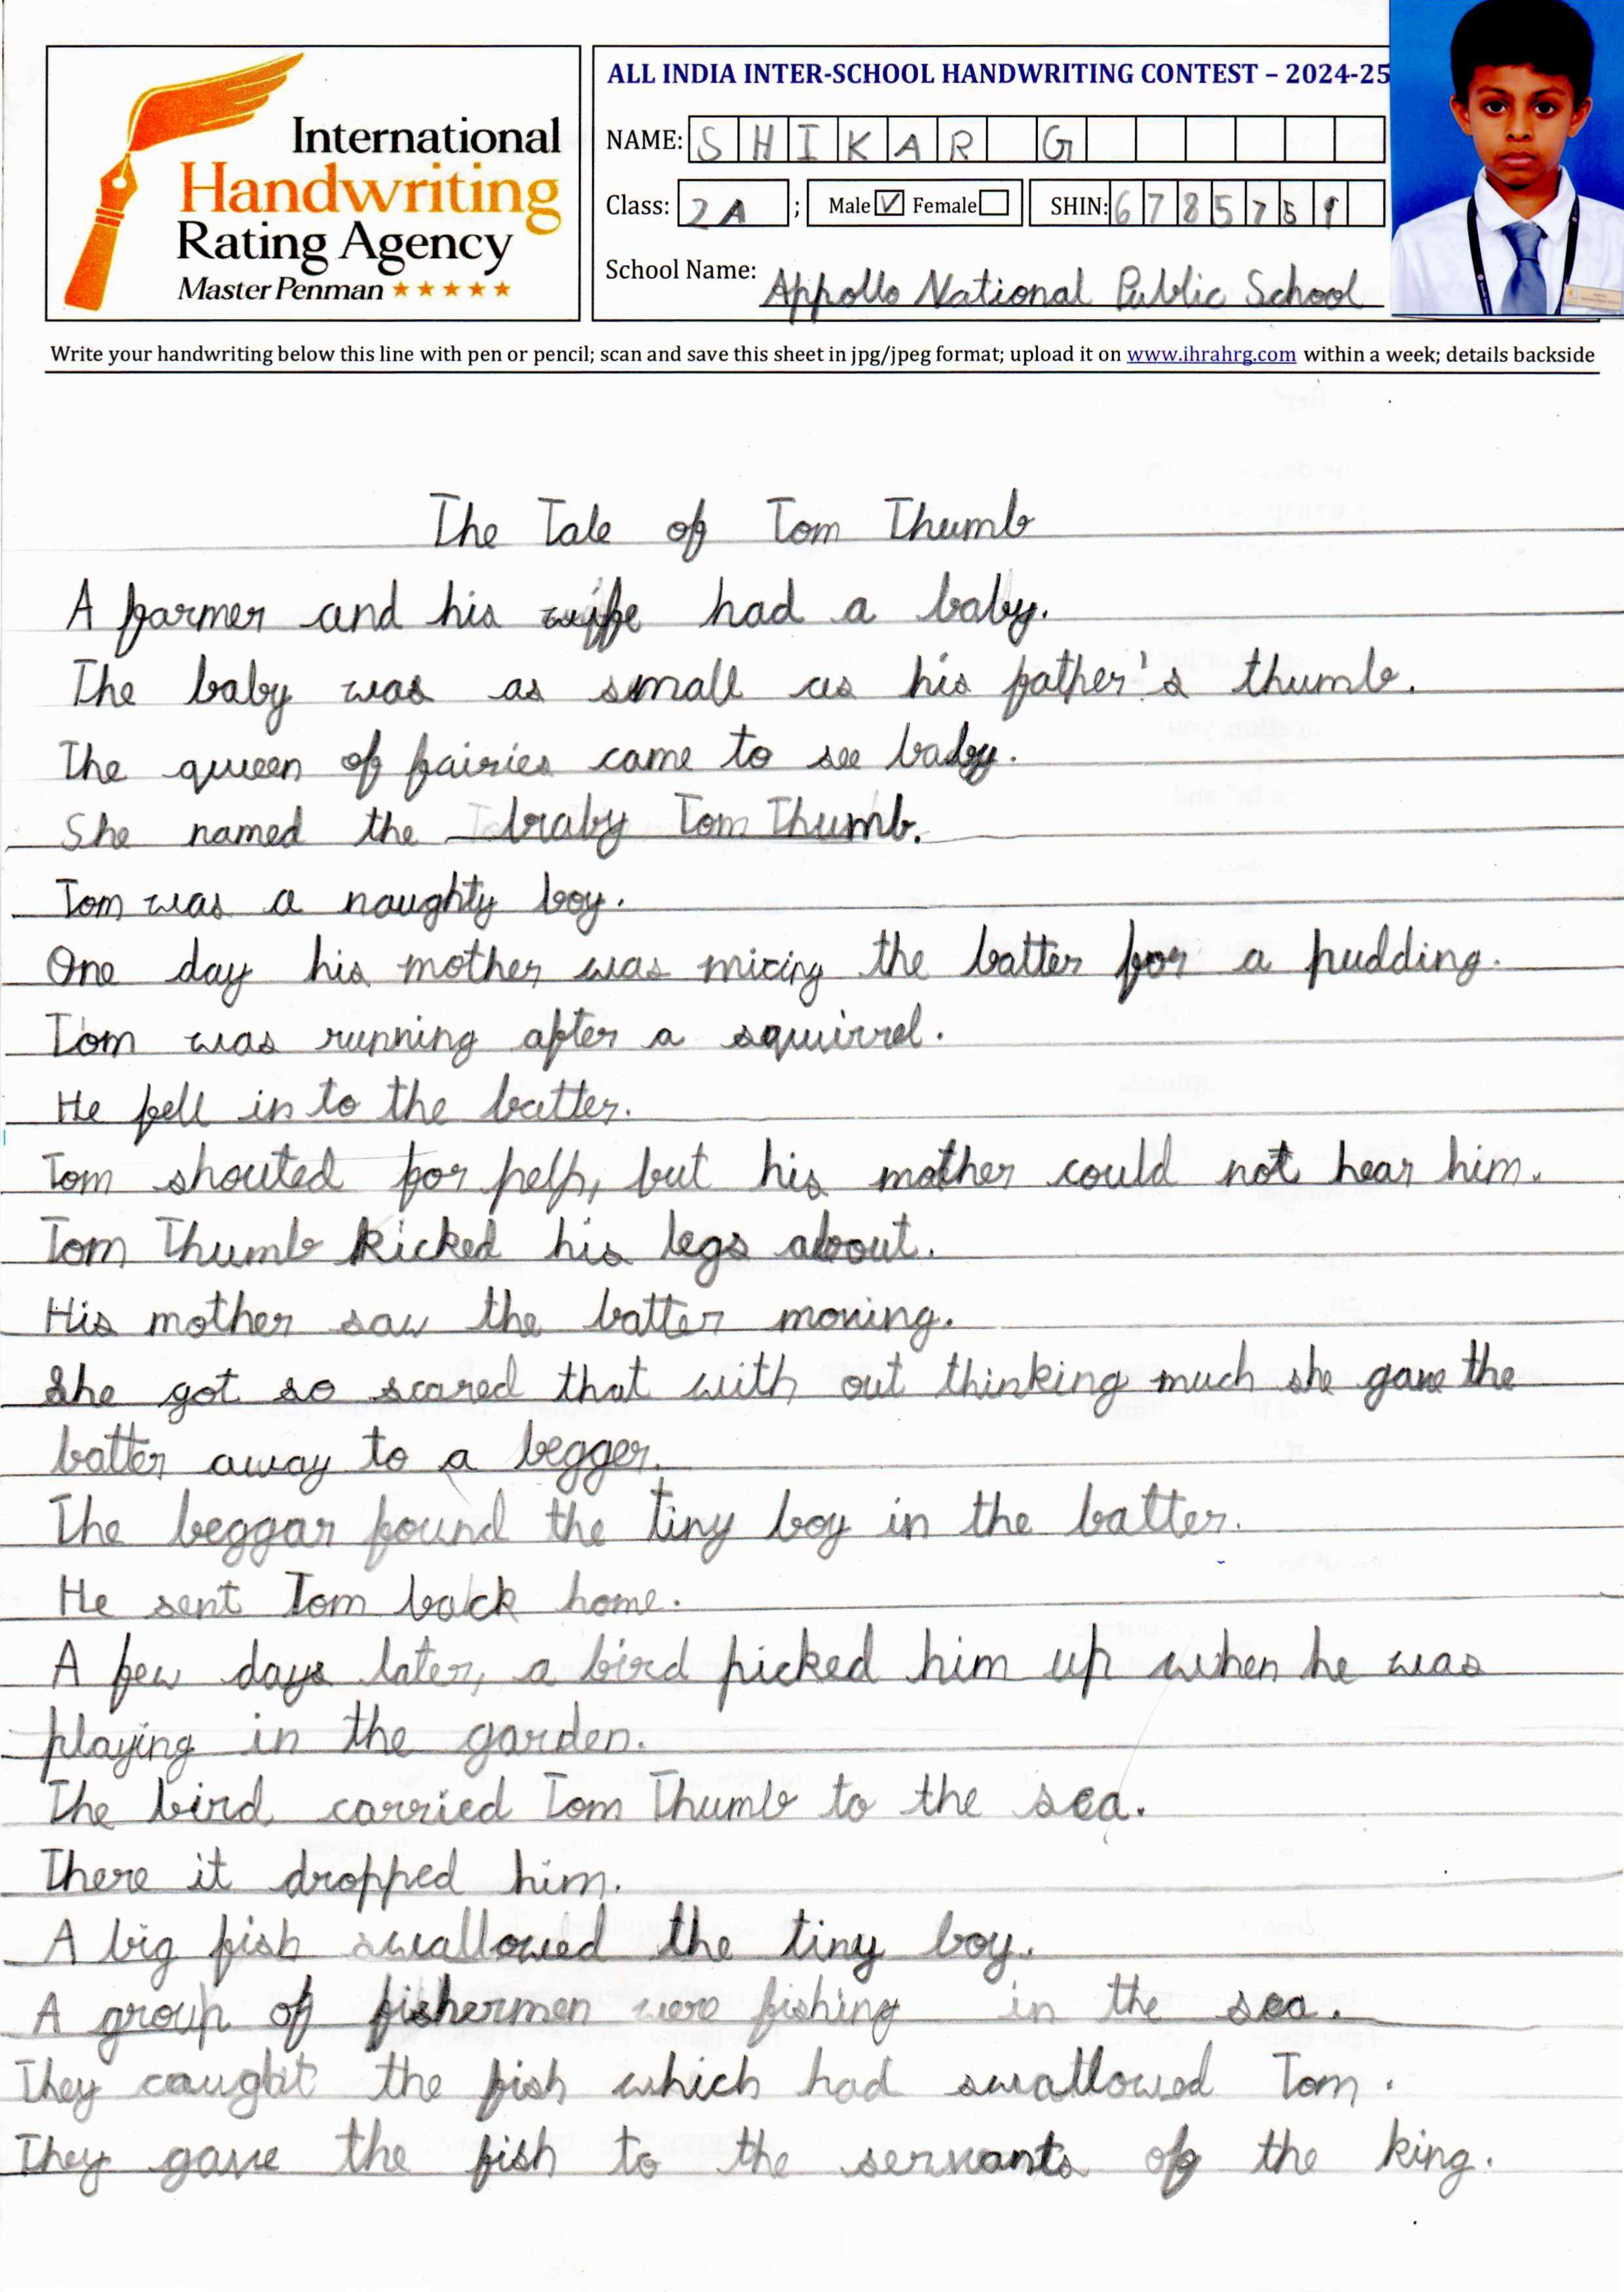 International
Handwriting
Rating Agency
Master Penman
ALL INDIA INTER-SCHOOL HANDWRITING CONTEST – 2024-25
NAME: SHIKAR G
Class: 2A ; Male Female SHIN: 6785751
School Name: Appollo National Public School
Write your handwriting below this line with pen or pencil; scan and save this sheet in jpg/jpeg format; upload it on www.ihrahrg.com within a week; details backside
The Tale of Tom Thumb
A farmer and his wife had a baby.
The baby was as small as his father's thumb.
The queen of fairies came to see baby.
She named the baby Tom Thumb.
Tom was a naughty boy.
One day his mother was mixing the batter for a pudding.
Tom was running after a squirrel.
He fell in to the batter.
Tom shouted for help, but his mother could not hear him.
Tom Thumb kicked his legs about.
His mother saw the batter moving.
She got so scared that with out thinking much she gave the
batter away to a begger.
The beggar found the tiny boy in the batter.
He sent Tom back home.
A few days later, a bird picked him up when he was
playing in the garden.
The bird carried Tom Thumb to the sea.
There it dropped him.
A big fish swallowed the tiny boy.
A group of fishermen were fishing in the sea.
They caught the fish which had swallowed Tom.
They gave the fish to the servants of the king.